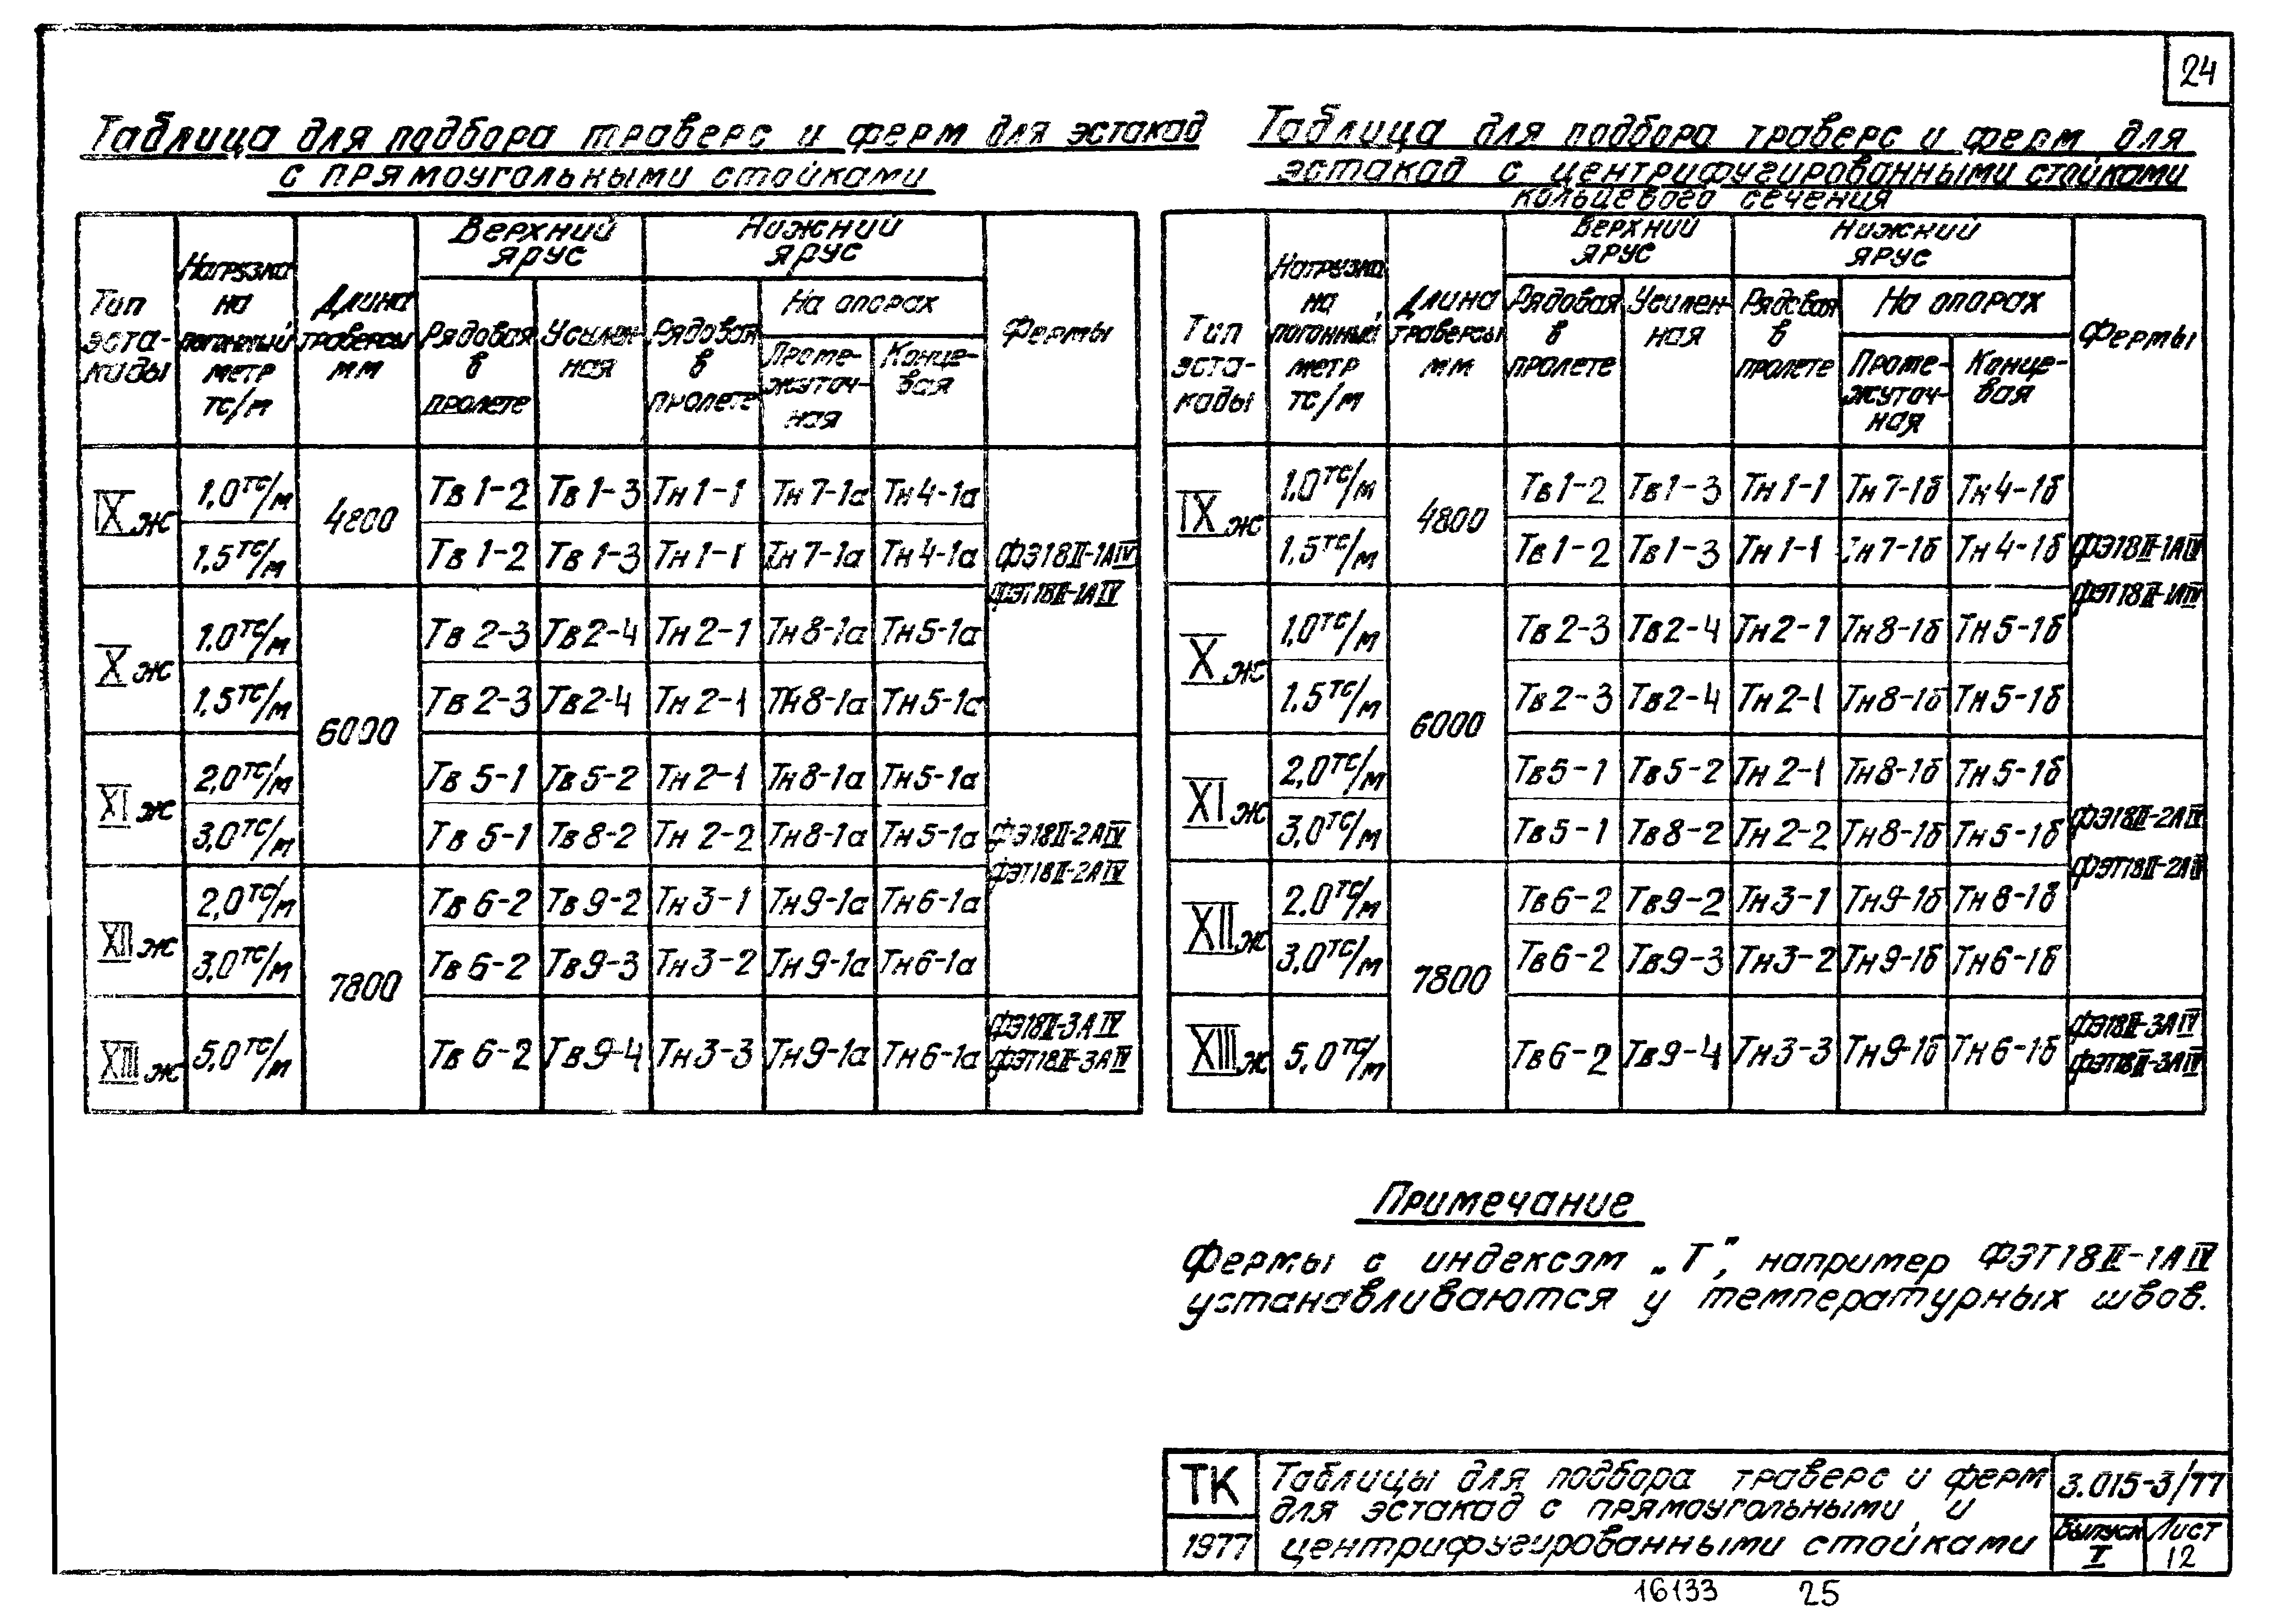 24
Таблица для подбора траверс и ферм для эстакад
с прямоугольными стойками
Тип эста- кады | Нагрузка на погонный метр тс/м | Длина траверсы мм | Верхний ярус | Нижний ярус | Фермы
Рядовая в пролете | Усилен- ная | Рядовая в пролете | На опорах
Проме- жуточ- ная | Конце- вая
IXж | 1,0тс/м | 4800 | Тв1-2 | Тв1-3 | Тн1-1 | Тн7-1а | Тн4-1а | ФЭ18II-1АIV ФЭТ18II-1АIV
1,5тс/м | Тв1-2 | Тв1-3 | Тн1-1 | Тн7-1а | Тн4-1а
Xж | 1,0тс/м | 6000 | Тв2-3 | Тв2-4 | Тн2-1 | Тн8-1а | Тн5-1а
1,5тс/м | Тв2-3 | Тв2-4 | Тн2-1 | Тн8-1а | Тн5-1а
XIж | 2,0тс/м | Тв5-1 | Тв5-2 | Тн2-1 | Тн8-1а | Тн5-1а | ФЭ18II-2АIV ФЭТ18II-2АIV
3,0тс/м | Тв5-1 | Тв8-2 | Тн2-2 | Тн8-1а | Тн5-1а
XIIж | 2,0тс/м | 7800 | Тв6-2 | Тв9-2 | Тн3-1 | Тн9-1а | Тн6-1а
3,0тс/м | Тв6-2 | Тв9-3 | Тн3-2 | Тн9-1а | Тн6-1а
XIIIж | 5,0тс/м | Тв6-2 | Тв9-4 | Тн3-3 | Тн9-1а | Тн6-1а | ФЭ18II-3АIV ФЭТ18II-3АIV
Таблица для подбора траверс и ферм для
эстакад с центрифугированными стойками
кольцевого сечения
Тип эста- кады | Нагрузка на погонный метр тс/м | Длина траверсы мм | Верхний ярус | Нижний ярус | Фермы
Рядовая в пролете | Усилен- ная | Рядовая в пролете | На опорах
Проме- жуточ- ная | Конце- вая
IXж | 1.0тс/м | 4800 | Тв1-2 | Тв1-3 | Тн1-1 | Тн7-1б | Тн4-1б | ФЭ18II-1АIV ФЭТ18II-1АIV
1,5тс/м | Тв1-2 | Тв1-3 | Тн1-1 | Тн7-1б | Тн4-1б
Xж | 1,0тс/м | 6000 | Тв2-3 | Тв2-4 | Тн2-1 | Тн8-1б | Тн5-1б
1.5тс/м | Тв2-3 | Тв2-4 | Тн2-1 | Тн8-1б | Тн5-1б
XIж | 2,0тс/м | Тв5-1 | Тв5-2 | Тн2-1 | Тн8-1б | Тн5-1б | ФЭ18II-2АIV ФЭТ18II-2АIV
3,0тс/м | Тв5-1 | Тв8-2 | Тн2-2 | Тн8-1б | Тн5-1б
XIIж | 2.0тс/м | 7800 | Тв6-2 | Тв9-2 | Тн3-1 | Тн9-1б | Тн8-1б
3,0тс/м | Тв6-2 | Тв9-3 | Тн3-2 | Тн9-1б | Тн6-1б
XIIIж | 5.0тс/м | Тв6-2 | Тв9-4 | Тн3-3 | Тн9-1б | Тн6-1б | ФЭ18II-3АIV ФЭТ18II-3АIV
Примечание
Фермы с индексом „Т”, например ФЭТ18II-1АIV
устанавливаются у температурных швов.
ТК
1977
Таблицы для подбора траверс и ферм
для эстакад с прямоугольными и
центрифугированными стойками
3.015-3/77
Выпуск I
Лист 12
16133 25